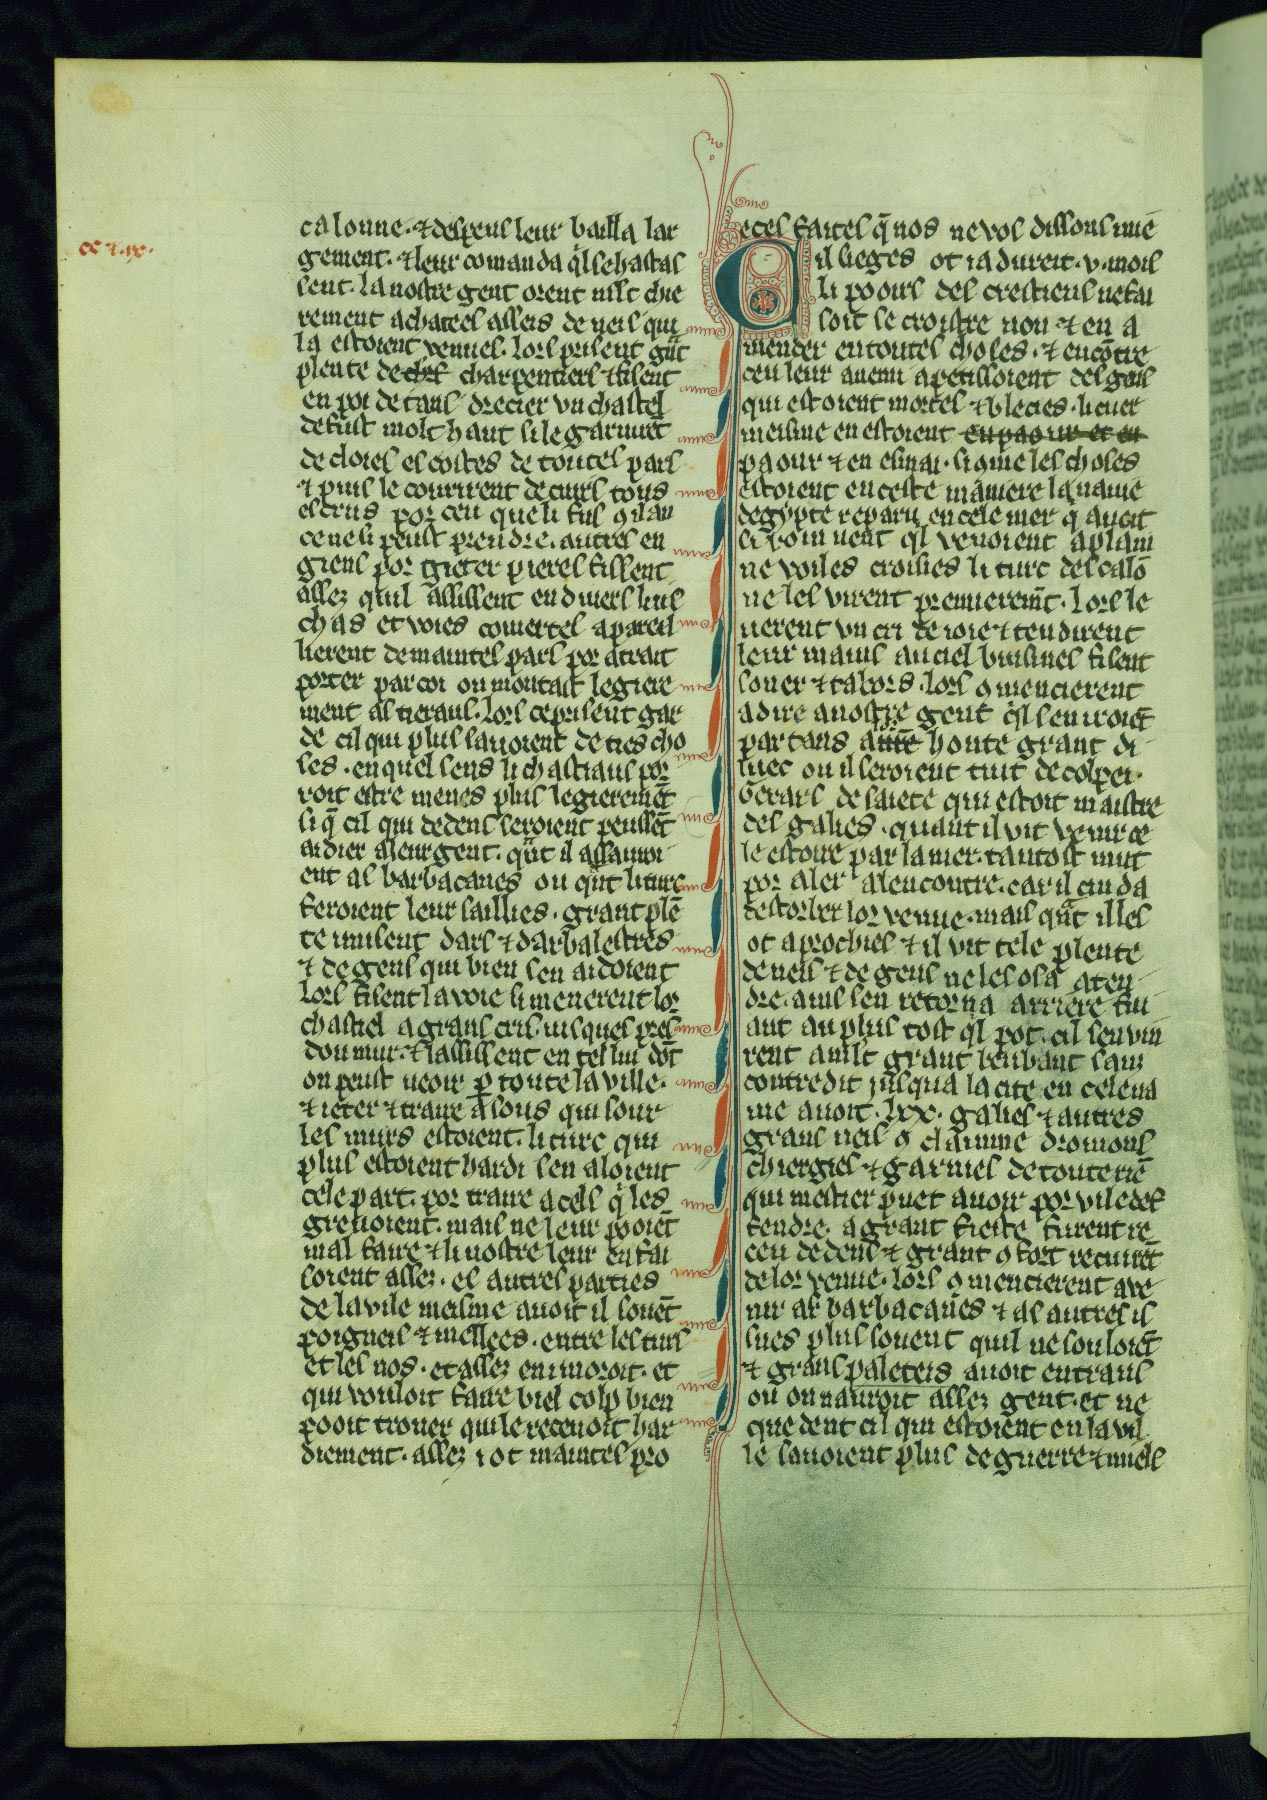 cc ⁊ .ix.
calonne. ⁊ despens leur bailla lar
gement. ⁊ leur comanda q̾l se hastas
sent. la nostre gent orent mlt̾ chie
rement achateel assers de neis qui
la estoient venues. lors prisent gᵃ̄t
plente de chrl charpentiers ⁊ fisent
en poi de tans drecier vn chastel
de fust molt haut si le garnirēt
de cloies es costes de toutes pars
⁊ puis le courirent de cuirs tous
escrus por ceu que li fus ꝯ i lan
ce ne li peust prendre. autres en
giens por gieter pieres fissent
assez quil assissent en diuers lius
chas et voies couiertes apareil
lierent de maintes pars por atrait
porter par coi on montast legiere
ment as tieraus. lors ce prisent gar
de cil qui plus sauoient de ties cho
ses. en quel sens li chastiaus por
roit estre menes plus legieremēt
si q̄ cil qui dedens seroient peussēt
aidier a leur gent. qᵃ̄t il assauroi
ent as barbacanes ou qᵃ̄t li turc
feroient leur saillies. grant plē
te misent dars ⁊ darbalestres
⁊ de gens qui bien sen aidoient
lors fisent la voie si menerent lor
chastiel a grans cris. iusques pres
dou mur. ⁊ lassissent en tel liu dōt
on peust ueoir ꝑ toute la ville.
⁊ ieter ⁊ traire a sous qui sour
les murs estoient. li turc qui
plus estoient hardi sen aloient
cele part. por traire a cels q̾ les
greuoient. mais ne leur pooiēt
mal faire ⁊ li nostre leur en fai
soient assez. es autres parties
de la vile meisme auoit il souēt
poigneis ⁊ mellees. entre les turs
et les nos. et assez en i moroit. et
qui vouloit faire biel colp bien
pooit trouer qui le receuoit har
diement. assez i ot maintes pro
eces faites q̄ nos ne vos dissons mie
Cil sieges ot ia dureit. v. mois
li poours des crestiens ne fai
soit se croistre non ⁊ en a
mender en toutes choses. ⁊ encōtre
ceu leur auenu apetissoient des gens
qui estoient mortes ⁊ blecies. li cuer
meisme en estoient en paour et en
paour ⁊ en esmai. si ome les choses
estoient en ceste maniere la nauie
degypte reparu en cele mer q̾ aucit
si boin uent q̾l venoient a plain
ne voiles croisies li turc descalō
ne les virent premieremt̄. lors le
uerent vn cri de ioie ⁊ tendirent
leur mains au ciel buisines fisent
souer ⁊ tabors. lors ꝯmencierent
a dire a nostre gent q̾l sen iroiēt
par tans a honte grant di
luec ou il seroient tuit decolpei.
Gerars de saiete qui estoit maistre
des galies. quant il vit venir ce
le estoire par la mer. tantost mut
por aler a lencontre. car il cuida
destorber lor venue. mais qᵃ̄t il les
ot aprochies ⁊ il vit tele plente
de neis ⁊ de gens ne les osa aten
dre. ains sen retorna arriere fui
ant au plus tost q̾l pot. cil sen vin
rent a mlt̾ grant beubant sans
contredit jusqua la cite en cele na
uie auoit .lxx. galies ⁊ autres
grans neis ꝯ claimme dromons
chiergies ⁊ garnies de toute riē
qui mestier puet auoir por vile def
fendre. a grant fieste furent re
ceu dedens ⁊ grant ꝯfort recuirēt
de lor venue. lors ꝯmencierent a ve
nir as barbacanes ⁊ as autres is
sues plus souent quil ne souloiēt
⁊ grans paleteis auoit entraus
ou on nauroit assez gent. et ne
que dent cil qui estoient en la vil
le sauoient plus de guerre ⁊ miels